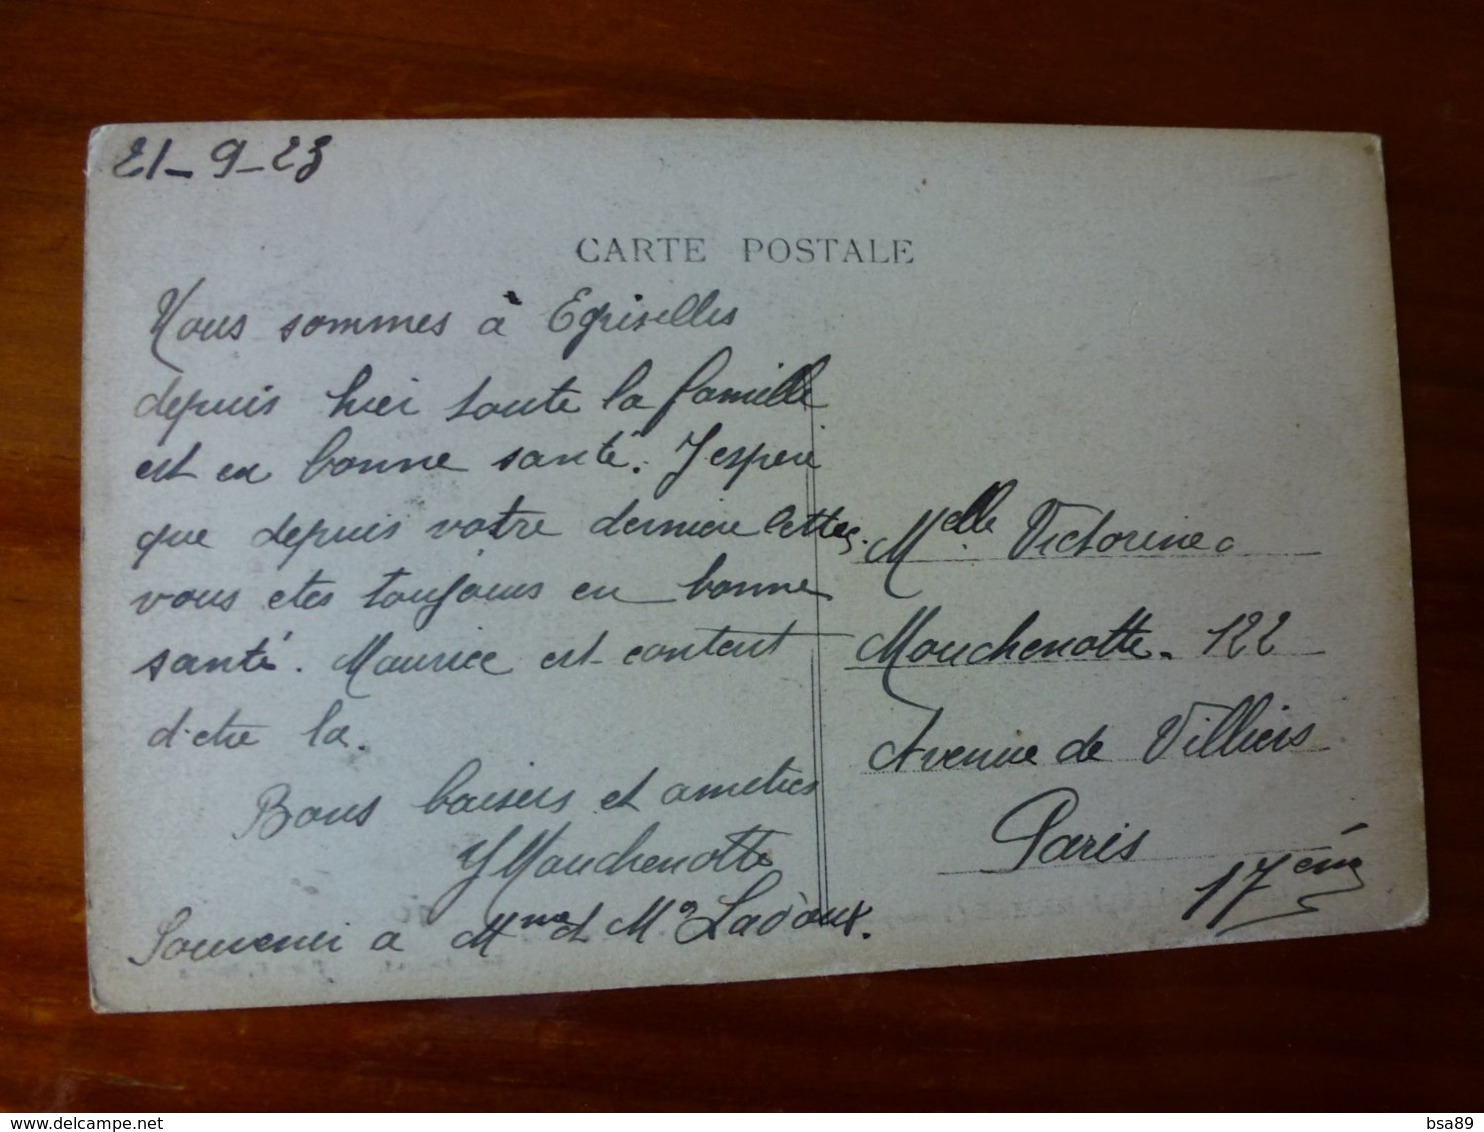 21-9-23
CARTE POSTALE
Nous sommes à Egriselles
depuis hier toute la famille
est en bonne santé. J'espère
que depuis votre dernière lettre
vous etes toujours en bonne
santé. Maurice est content
d'etre la.
Bons baisers et amitiés
Y Mouchenotte
Souvenir a Mme et Mr Ladoux.
Melle Victorine
Mouchenotte. 122
Avenue de Villiers
Paris
17ème
bsa89